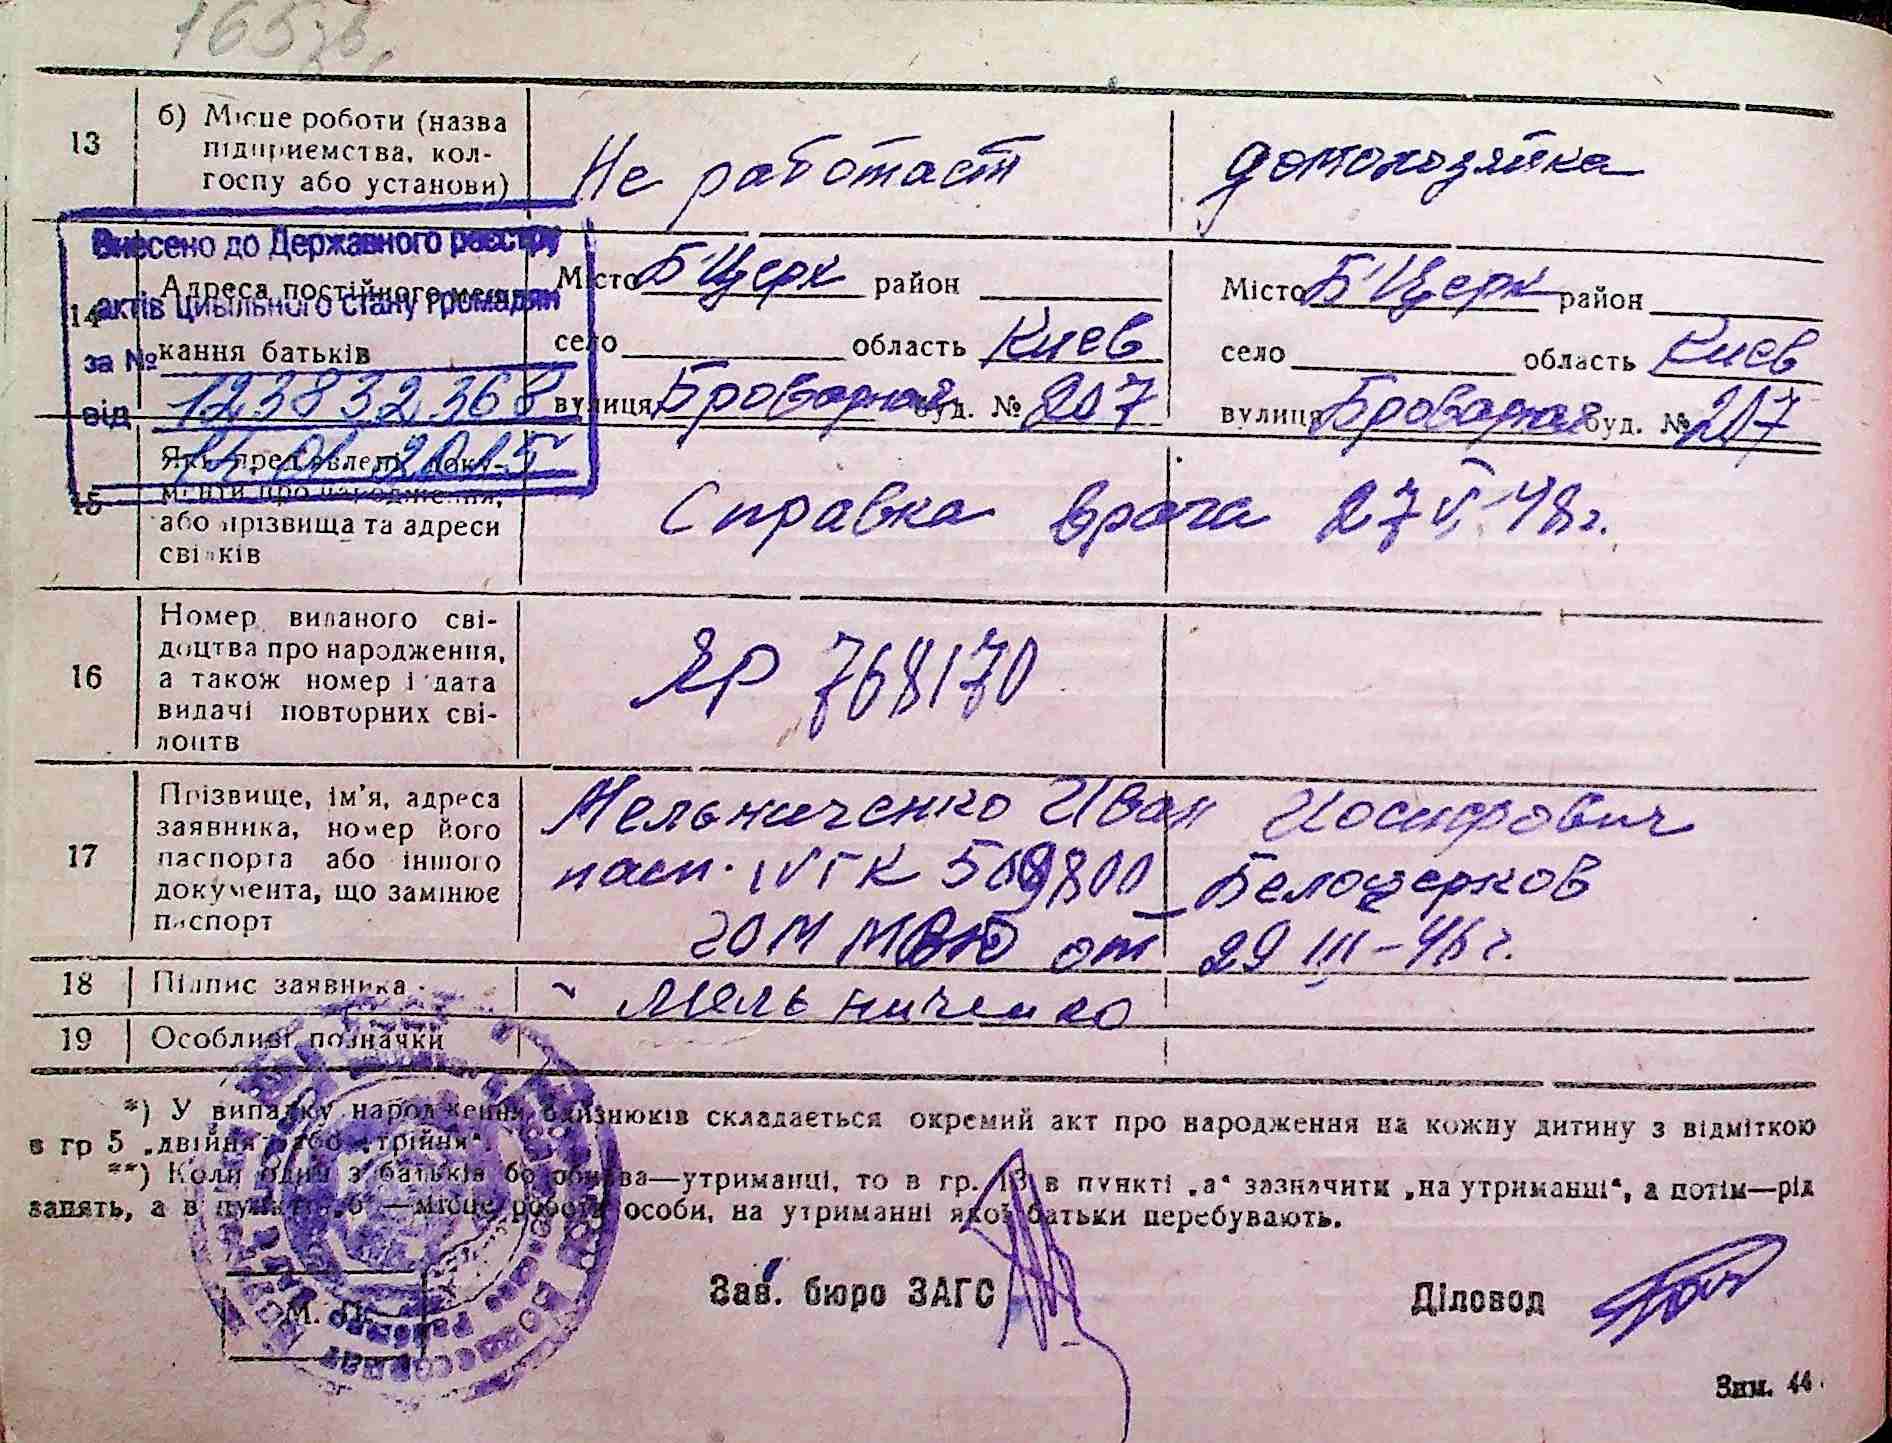 165зв.
13
б) Місце роботи (назва
підприємства, кол-
госпу або установи)
Не работает
домохозяйка
Внесено до Державного реєстру
актів цивільного стану громадян
за № 123832368
від 14.01.2015
14
Адреса постійного меш-
кання батьків
Місто Б'Церк район
село область Киев
вулиця Броварная буд. № 207
Місто Б'Церк район
село область Киев
вулиця Броварная буд. № 207
15
Які пред'явлені доку-
менти про народження,
або прізвища та адреси
свідків
Справка врача 27 V-48г.
16
Номер виданого сві-
доцтва про народження,
а також номер і дата
видачі повторних сві-
доцтв
ЯР 768170
17
Прізвище, ім'я, адреса
заявника, номер його
паспорта або іншого
документа, що замінює
паспорт
Мельниченко Иван Иосифович
пасп. IVГК 509800 Белоцерков
ГОМ от 29 III-46г.
18
Підпис заявника
Мельниченко
19
Особливі позначки
*) У випадку народження близнюків складається окремий акт про народження на кожну дитину з відміткою
в гр 5 „двійня“ або „трійня“.
**) Коли один з батьків бо обидва—утриманці, то в гр. 13 в пункті „а“ зазначити „на утриманні“, а потім—рід
занять, а в пункті „б“—місце роботи особи, на утриманні якої батьки перебувають.
М. П.
Зав. бюро ЗАГС
Діловод
Зам. 44